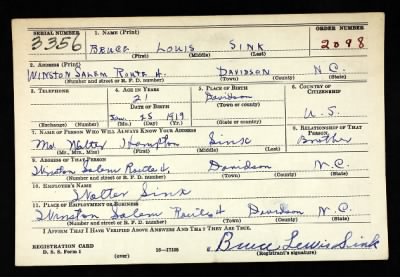 SERIAL NUMBER 1. NAME (Print) ORDER NUMBER
3356 BRUCE LOUIS SINK 2098
(First) (Middle) (Last)
2. ADDRESS (Print)
WINSTON SALEM ROUTE 4. DAVIDSON N.C.
(Number and street or R. F. D. number) (Town) (County) (State)
3. TELEPHONE 4. AGE IN YEARS 5. PLACE OF BIRTH 6. COUNTRY OF CITIZENSHIP
21 Davidson
DATE OF BIRTH (Town or county)
Jan. 25 1919 N.C. U.S.
(Exchange) (Number) (Mo.) (Day) (Yr.) (State or country)
7. NAME OF PERSON WHO WILL ALWAYS KNOW YOUR ADDRESS 8. RELATIONSHIP OF THAT PERSON
Mr. Walter Hampton Sink Brother
(Mr., Mrs., Miss) (First) (Middle) (Last)
9. ADDRESS OF THAT PERSON
Winston Salem Route 4, Davidson N.C.
(Number and street or R. F. D. number) (Town) (County) (State)
10. EMPLOYER'S NAME
Walter Sink
11. PLACE OF EMPLOYMENT OR BUSINESS
Winston Salem Route 4 Davidson N.C.
(Number and street or R. F. D. number) (Town) (County) (State)
I AFFIRM THAT I HAVE VERIFIED ABOVE ANSWERS AND THAT THEY ARE TRUE.
REGISTRATION CARD Bruce Lewis Sink
D. S. S. Form 1 (over) 16—17105 (Registrant's signature)